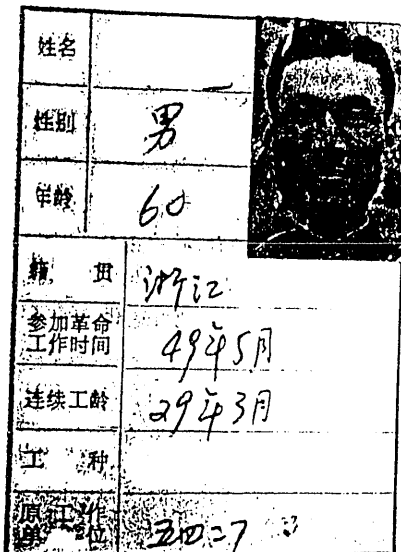 姓名
性别 男
年龄 60
籍贯 浙江
参加革命
工作时间 49年5月
连续工龄 29年3月
工种
原工作
单位 五四二厂